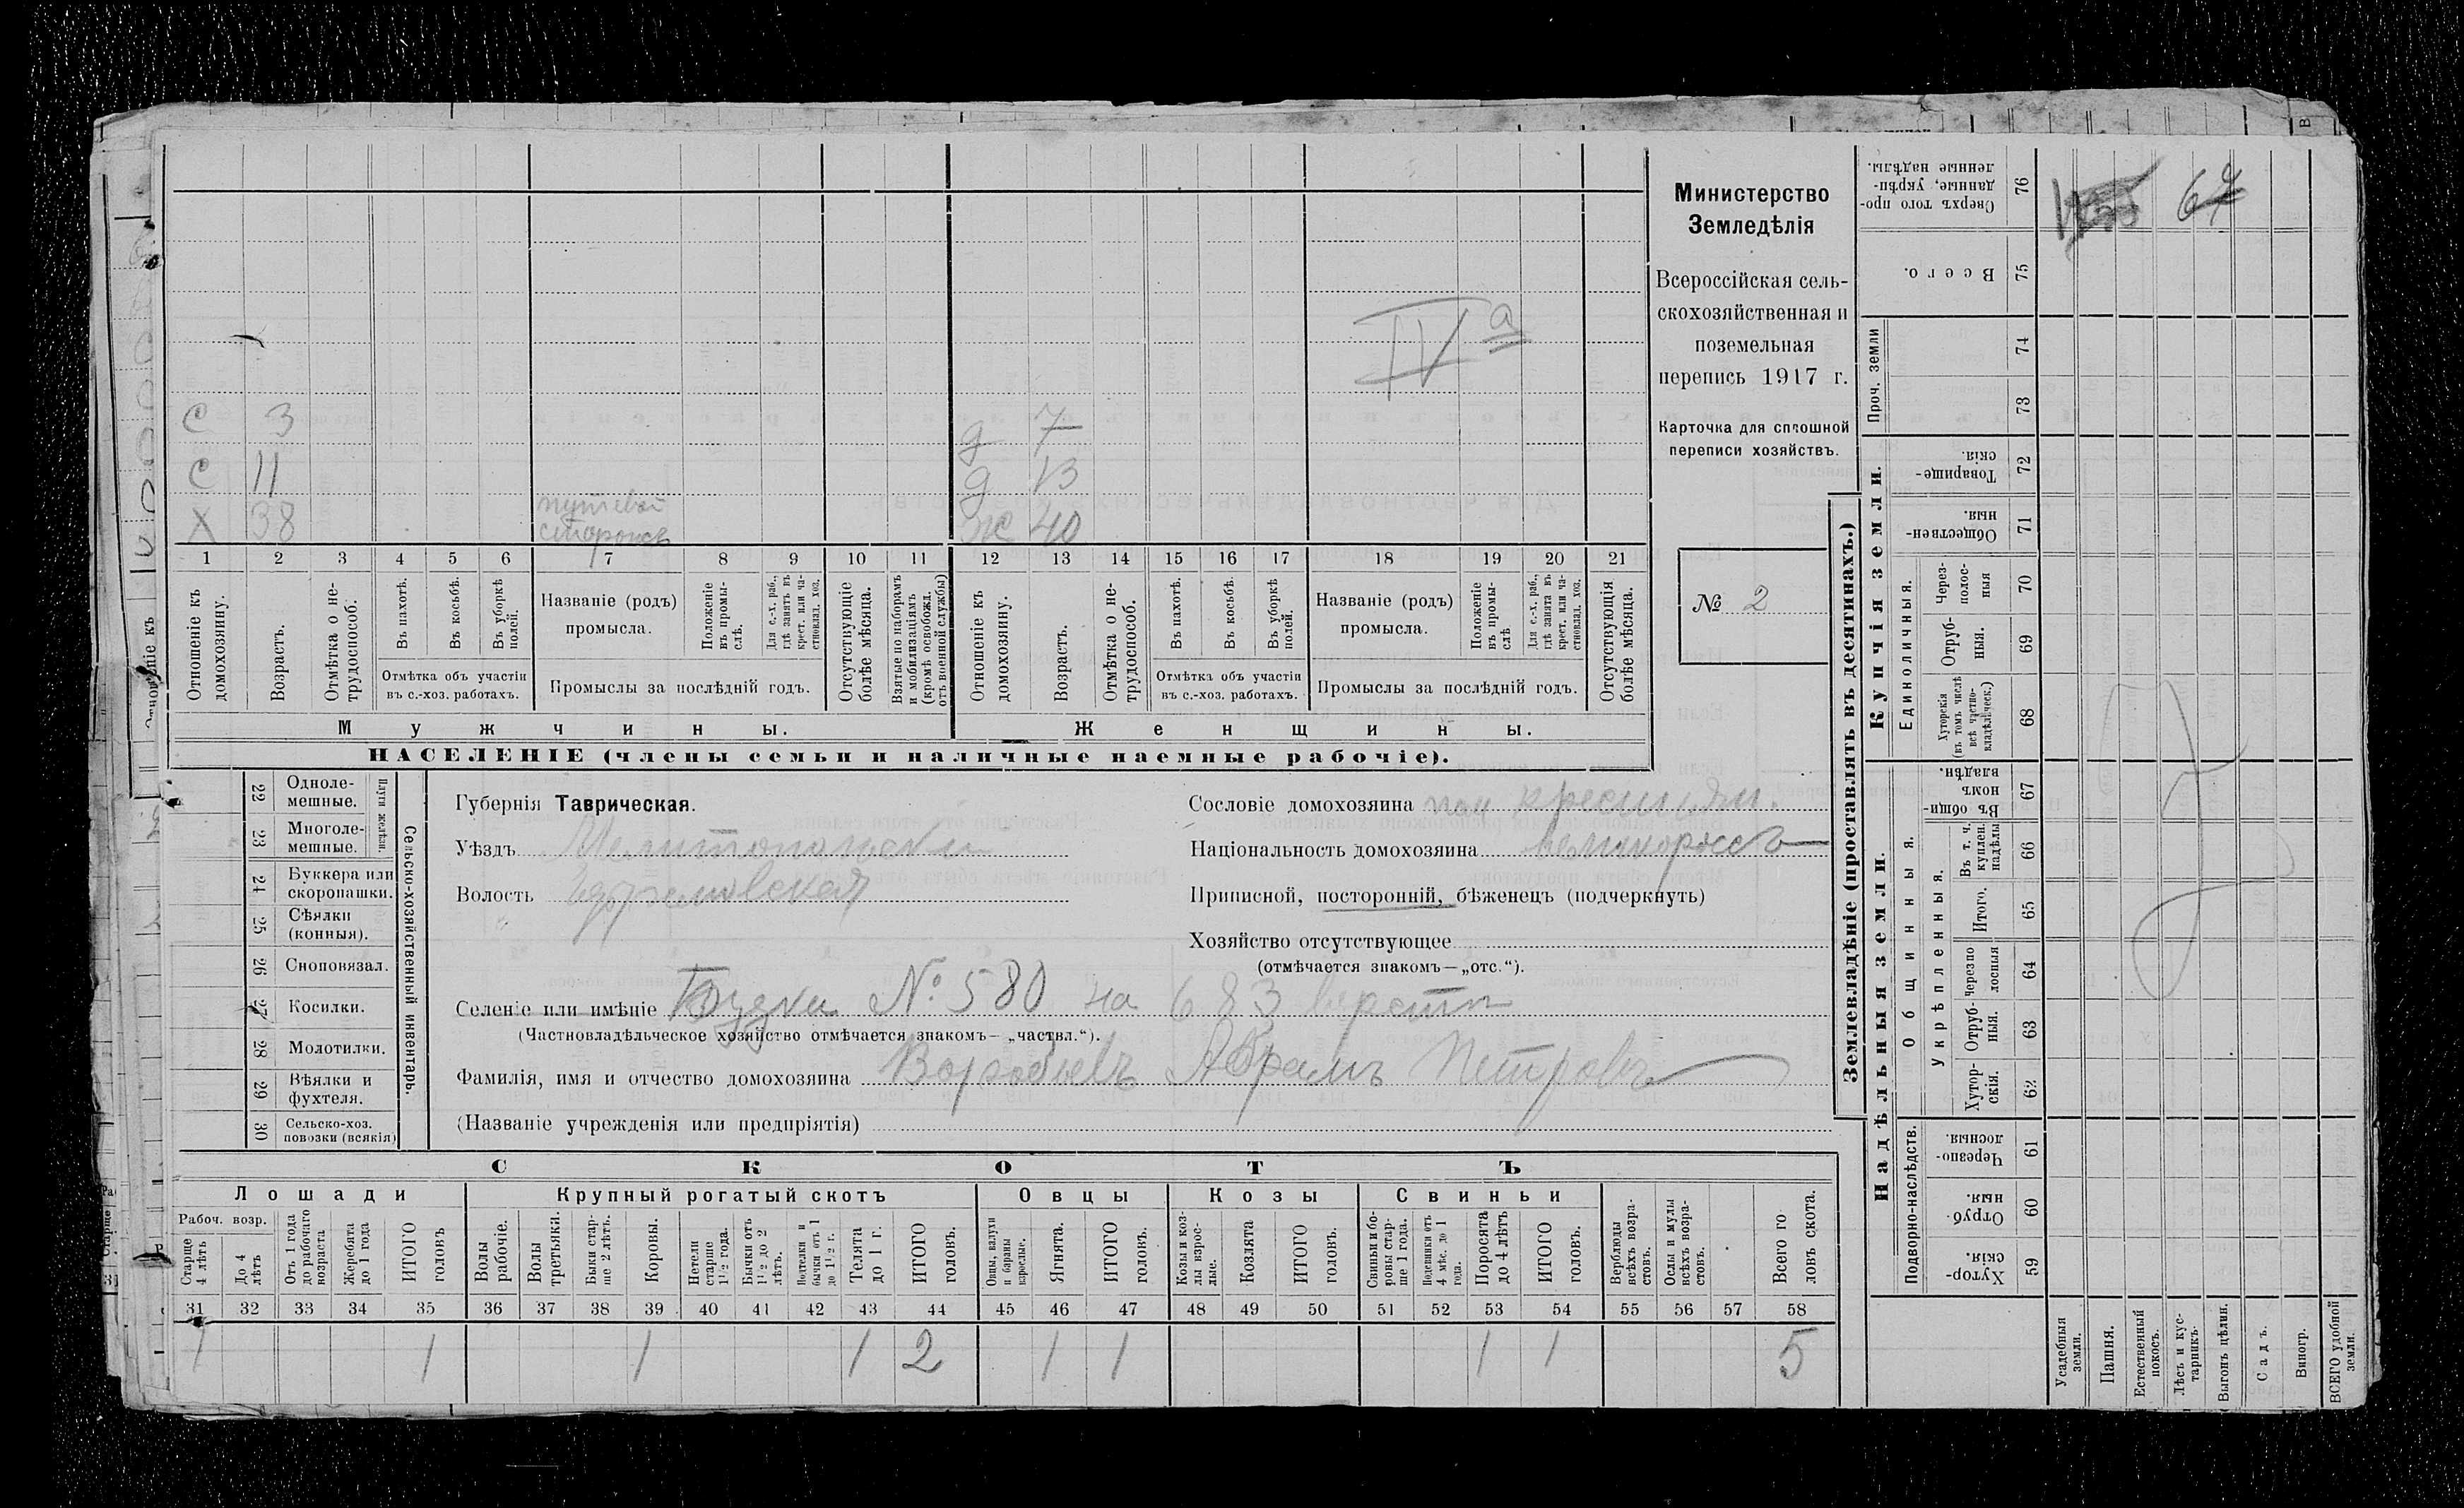 Министерство
Земледѣлія
Всероссійская сель-
скохозяйственная и
поземельная
перепись 1917 г.
Карточка для сплошной
переписи хозяйствъ.
№ 2
IV а
С 3
С 11
Х 38 путевой сторожъ
д 7
д 13
ж 40
1 2 3 4 5 6 7 8 9 10 11 12 13 14 15 16 17 18 19 20 21
Отношеніе къ домохозяину.
Возрастъ.
Отмѣтка о не-трудоспособ.
Въ пахотѣ.
Въ косьбѣ.
Въ уборкѣ полей.
Отмѣтка объ участіи въ с.-хоз. работахъ.
Названіе (родъ) промысла.
Положеніе въ промы-слѣ.
Для с.-х. раб., гдѣ занятъ въ крест. или ча-стновлад. хоз.
Промыслы за послѣдній годъ.
Отсутствующіе болѣе мѣсяца.
Взятые по наборамъ и мобилизаціямъ (кромѣ освобожд. отъ военной службы)
Отношеніе къ домохозяину.
Возрастъ.
Отмѣтка о не-трудоспособ.
Въ пахотѣ.
Въ косьбѣ.
Въ уборкѣ полей.
Отмѣтка объ участіи въ с.-хоз. работахъ.
Названіе (родъ) промысла.
Положеніе въ промы-слѣ
Для с.-х. раб., гдѣ занята въ крест. или ча-стновлад. хоз.
Промыслы за послѣдній годъ.
Отсутствующія болѣе мѣсяца.
Мужчины.
Женщины.
НАСЕЛЕНІЕ (члены семьи и наличные наемные рабочіе).
22 Одноле-мешные.
23 Многоле-мешные.
Плуги желѣзн.
24 Буккера или скоропашки.
25 Сѣялки (конныя).
26 Сноповязал.
27 Косилки.
28 Молотилки.
29 Вѣялки и фухтеля.
30 Сельско-хоз. повозки (всякія)
Сельско-хозяйственный инвентарь.
Губернія Таврическая.
Уѣздъ Мелитопольский
Волость
Селеніе или имѣніе Будка № 580 на 683 версты
(Частновладѣльческое хозяйство отмѣчается знакомъ— „частвл.“).
Фамилія, имя и отчество домохозяина Воробьевъ Абрамъ Петровъ
(Названіе учрежденія или предпріятія)
Сословіе домохозяина крестьян.
Національность домохозяина великороссъ
Приписной, посторонній, бѣженецъ (подчеркнуть)
Хозяйство отсутствующее
(отмѣчается знакомъ—„отс.“).
СКОТЪ
Лошади
Крупный рогатый скотъ
Овцы
Козы
Свиньи
Рабоч. возр.
Старше 4 лѣтъ
До 4 лѣтъ
Отъ 1 года до рабочаго возраста
Жеребята до 1 года
ИТОГО головъ
Волы рабочіе.
Волы третьяки.
Быки стар-ше 2 лѣтъ.
Коровы.
Нетели старше 1½ года.
Бычки отъ 1½ до 2 лѣтъ.
Подтелки и бычки отъ 1 до 1½ г.
Телята до 1 г.
ИТОГО головъ.
Овцы, валухи и бараны взрослые.
Ягнята.
ИТОГО головъ.
Козы и коз-лы взрос-лые.
Козлята
ИТОГО головъ.
Свиньи и бо-ровы стар-ше 1 года.
Подсвинки отъ 4 мѣс. до 1 года.
Поросята до 4 лѣтъ
ИТОГО головъ.
Верблюды всѣхъ возра-стовъ.
Ослы и мулы всѣхъ возра-стовъ.
Всего го-ловъ скота.
31 32 33 34 35 36 37 38 39 40 41 42 43 44 45 46 47 48 49 50 51 52 53 54 55 56 57 58
1 1 1 1 2 1 1 1 1 5
Землевладѣніе (проставлять въ десятинахъ.)
Надѣльныя земли.
Купчія земли.
Подворно-наслѣдств.
Общинныя.
Укрѣпленныя.
Единоличныя.
Проч. земли
Хутор-скія. 59
Отруб-ныя. 60
Черезпо-лосныя. 61
Хутор-скія. 62
Отруб-ныя. 63
Черезпо лосныя 64
Итого. 65
Въ т. ч. куплен. надѣлы 66
Въ общи-номъ владѣн. 67
Хуторскія (въ томъ числѣ всѣ частно-владѣльческ.) 68
Отруб-ныя. 69
Через-полос-ныя 70
Обществен-ныя. 71
Товарище-скія. 72
73
74
Всего. 75
Сверхъ того про-данные, укрѣп-ленные надѣлы. 76
67
Усадебныя земли.
Пашня.
Естественный покосъ.
Лѣсъ и кус-тарникъ.
Выгонъ цѣлин.
Садъ.
Виногр.
ВСЕГО удобной земли.